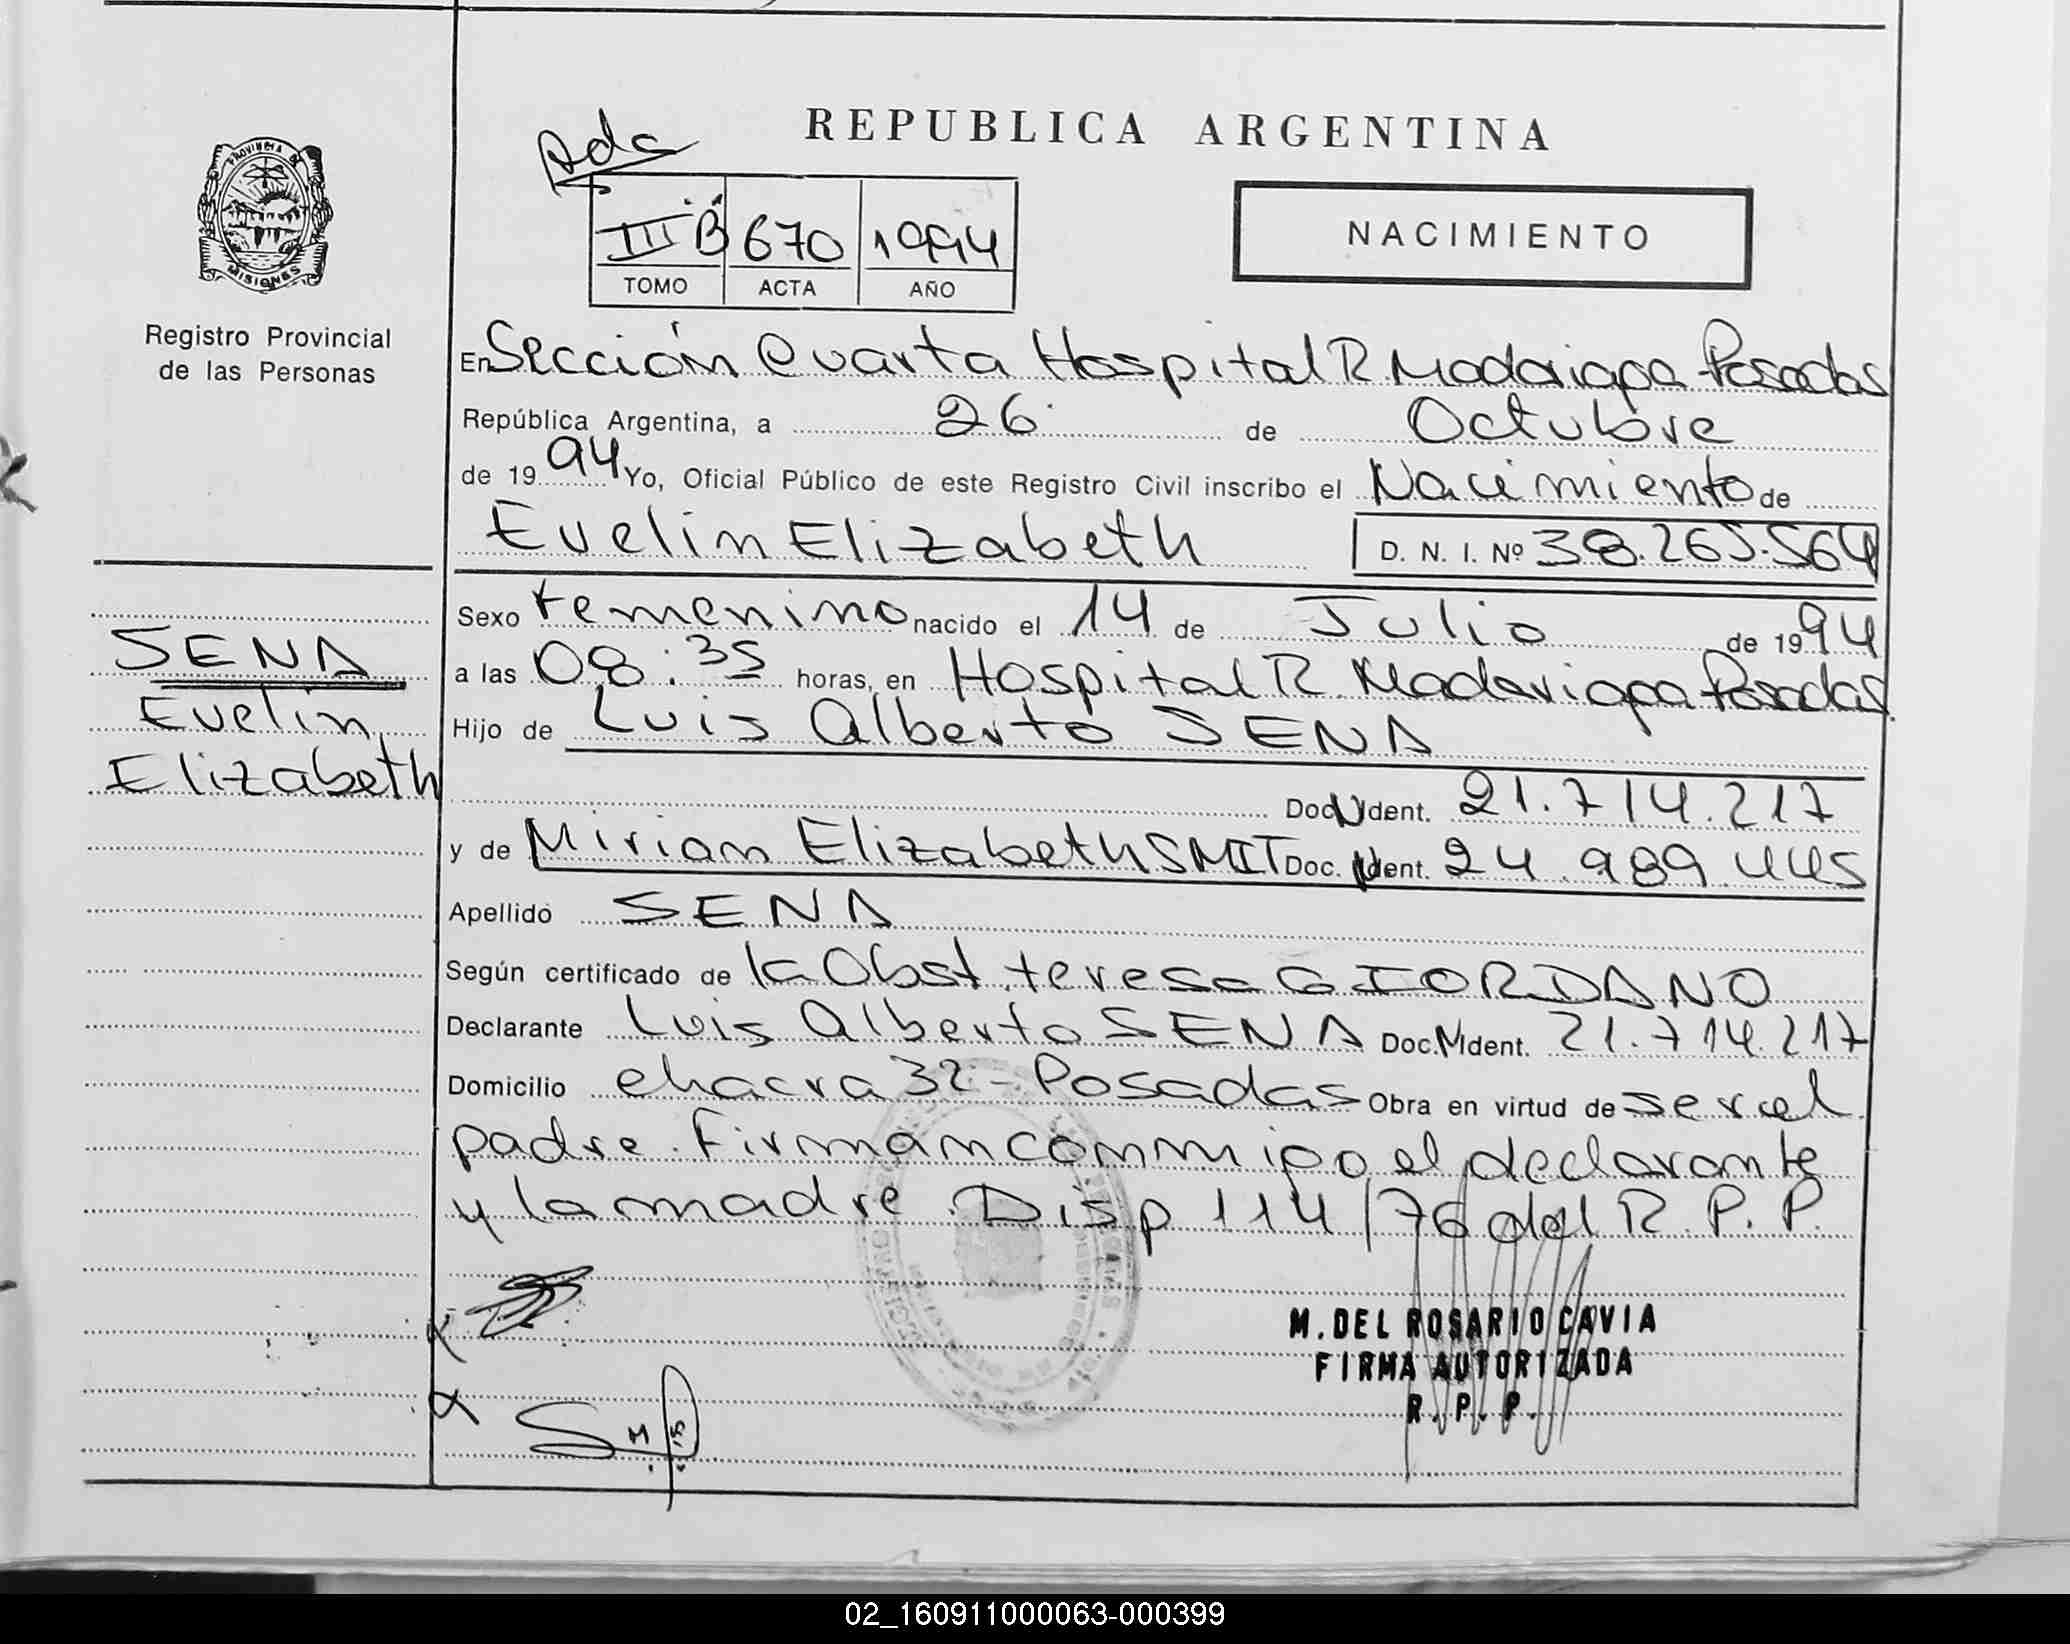 REPUBLICA ARGENTINA
PROVINCIA DE
MISIONES
Registro Provincial
de las Personas
III B 670 1994
TOMO ACTA AÑO
NACIMIENTO
En Sección Cuarta Hospital R Madariaga Posadas
República Argentina, a 26 de Octubre
de 19 94 Yo, Oficial Público de este Registro Civil inscribo el Nacimiento de
Evelin Elizabeth D. N. I. Nº 38.265.564
SENA
Evelin
Elizabeth
Sexo femenino nacido el 14 de Julio de 19 94
a las 08:35 horas, en Hospital R. Madariaga Posadas
Hijo de Luis Alberto SENA
Doc. Ident. 21.714.217
y de Mirian Elizabeth SMIT Doc. Ident. 24.989.445
Apellido SENA
Según certificado de la Obst. teresa GIORDANO
Declarante Luis Alberto SENA Doc. Ident. 21.714.217
Domicilio chacra 32 - Posadas Obra en virtud de ser el
padre. Firman conmigo el declarante
y la madre. Disp 114/76 del R. P. P.
M. DEL ROSARIO CAVIA
FIRMA AUTORIZADA
R. P. P.
02_160911000063-000399